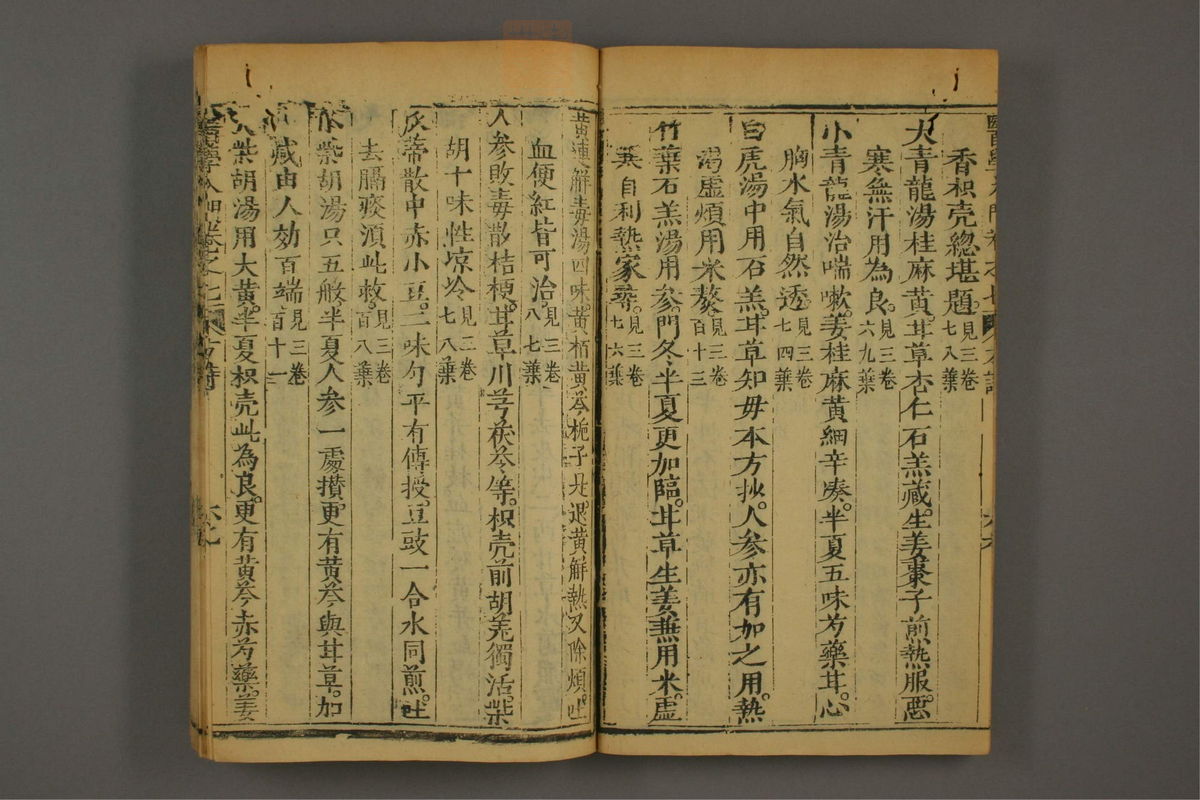 香枳壳總堪題見三卷七八葉
大青龍湯桂麻黄甘草杏仁石羔藏。生姜棗子煎熱服。惡
寒無汗用為良。見三卷六九葉
小青龍湯治喘嗽。姜桂麻黄細辛湊。半夏五味芍藥甘。心
胸水氣自然透。見三卷七四葉
白虎湯中用石羔。甘草知毋本方抄。人參亦有加之用。熱
渴虛煩用米熬。見三卷百十三
竹葉石羔湯用參。門冬半夏更加臨。甘草生姜兼用米。虛
煩自利熱家尋。見三卷七六葉
黄連解毒湯四味。黄栢黄芩梔子是。退黄解熱又除煩。吐
血便紅皆可治見三卷八七葉
人參敗毒散桔梗。甘草川芎茯苓等。枳壳前胡羗獨活。柴
胡十味性凉冷見二卷七八葉
瓜蒂散中赤小豆。二味勻平有傳授。豆豉一合水同煎。吐
去膈痰湏此救。見三卷百八葉
小柴胡湯只五般。半夏人参一處攅。更有黄芩與甘草。加
减由人効百端。見三卷百十一
大柴胡湯用大黄。半夏枳壳此為良。更有黄芩赤芍藥。姜
醫學入門卷之七